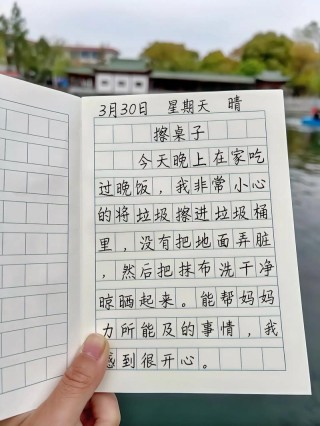 3月30日 星期天 晴
擦桌子
今天晚上在家吃
过晚饭，我非常小心
的将垃圾擦进垃圾桶
里，没有把地面弄脏
，然后把抹布洗干净
晾晒起来。能帮妈妈
力所能及的事情，我
感到很开心。